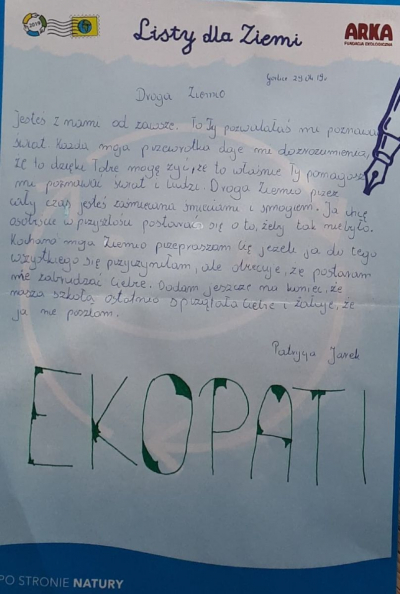 2019
Listy dla Ziemi
ARKA
FUNDACJA EKOLOGICZNA
Droga Ziemio
Jesteś z nami od zawsze. To Ty pozwalałaś mi poznawać
świat. Każda moja przewrotka daje mi do zrozumienia,
że to dzięki Tobie mogę żyć, że to właśnie Ty pomagasz
mi poznawać świat i ludzi. Droga Ziemio przez
cały czas jesteś zaśmiecana śmieciami i smogiem. Ja chcę
osobiście w przyszłości postarać się o to, żeby tak nie było.
Kochana moja Ziemio przepraszam Cię jeżeli ja do tego
wszystkiego się przyczyniłam, ale obiecuję, że postaram
nie zabrudzać Ciebie. Dodam jeszcze na koniec, że
nasza szkoła ostatnio sprzątała Ciebie i żałuję, że
ja nie poszłam.
Patrycja Janek
EKOPATI
PO STRONIE NATURY